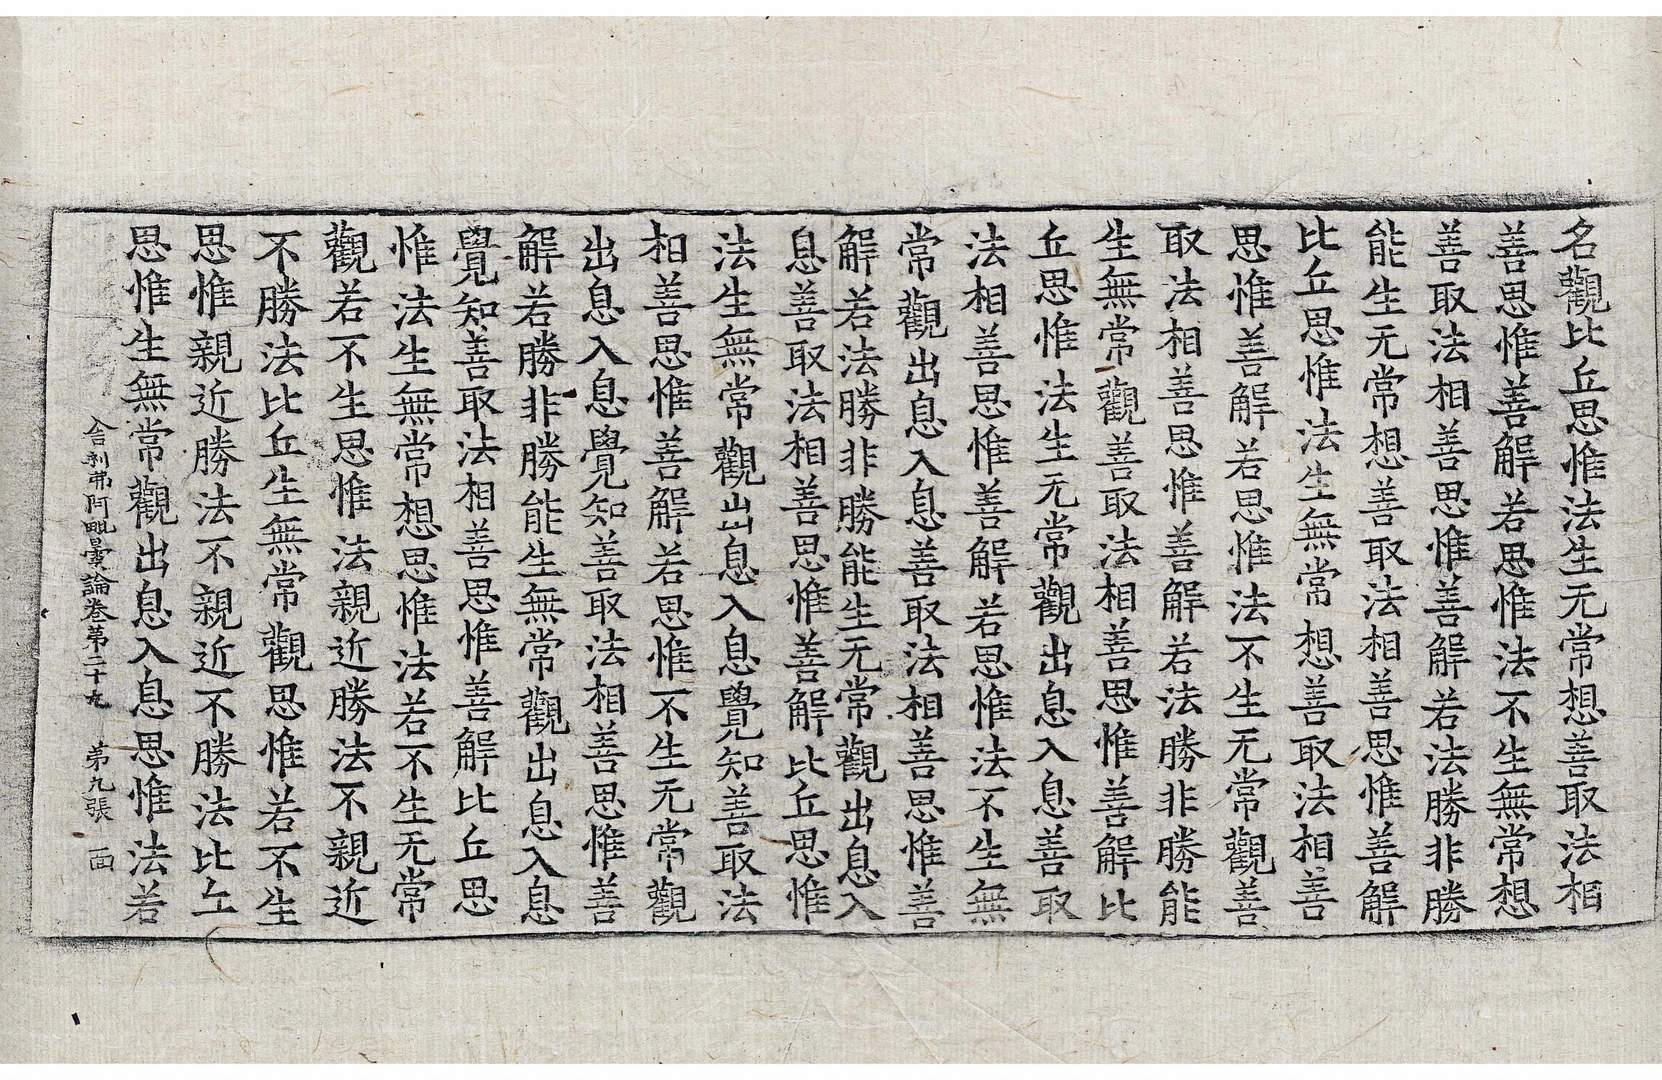 名觀比丘思惟法生无常想善取法相
善思惟善解若思惟法不生無常想
善取法相善思惟善解若法勝非勝
能生无常想善取法相善思惟善解
比丘思惟法生無常想善取法相善
思惟善解若思惟法不生无常觀善
取法相善思惟善解若法勝非勝能
生無常觀善取法相善思惟善解比
丘思惟法生无常觀出息入息善取
法相善思惟善解若思惟法不生無
常觀出息入息善取法相善思惟善
解若法勝非勝能生无常觀出息入
息善取法相善思惟善解比丘思惟
法生無常觀出息入息覺知善取法
相善思惟善解若思惟不生无常觀
出息入息覺知善取法相善思惟善
解若勝非勝能生無常觀出息入息
覺知善取法相善思惟善解比丘思
惟法生無常想思惟法若不生无常
觀若不生思惟法親近勝法不親近
不勝法比丘生無常觀思惟若不生
思惟親近勝法不親近不勝法比丘
思惟生無常觀出息入息思惟法若
舍利弗阿毗曇論卷第二十九 第九張 面